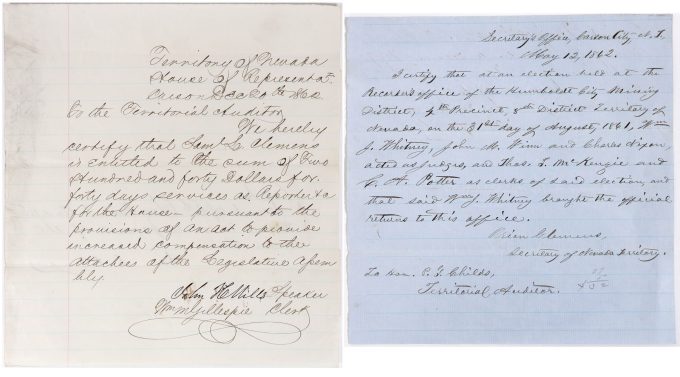 Territory of Nevada
House of Representat.
Carson Dec 20th 1862
To the Territorial Auditor
We hereby
certify that Saml. L. Clemens
is entitled to the sum of Two
Hundred and forty Dollars for
forty days services as Reporter &c
for the House - pursuant to the
provisions of An act to provide
increased compensation to the
attachees of the Legislative Assem
bly
John H Mills Speaker
Wm M Gillespie Clerk
Secretary's Office, Carson City, N. T.
May 12, 1862.
I certify that at an election held at the
Recorder's office of the Humboldt City Mining
District, 4th Precinct, 8th District Territory of
Nevada, on the 31st day of August, 1861, Wm
J. Whitney, John M. Winn and Charles Nixon
acted as judges, and Thos. F. McKenzie and
G. A. Potter as clerks of said election, and
that said Wm J. Whitney brought the official
returns to this office.
Orion Clemens,
Secretary of Nevada Territory.
To Hon. P. F. Childs,
Territorial Auditor.